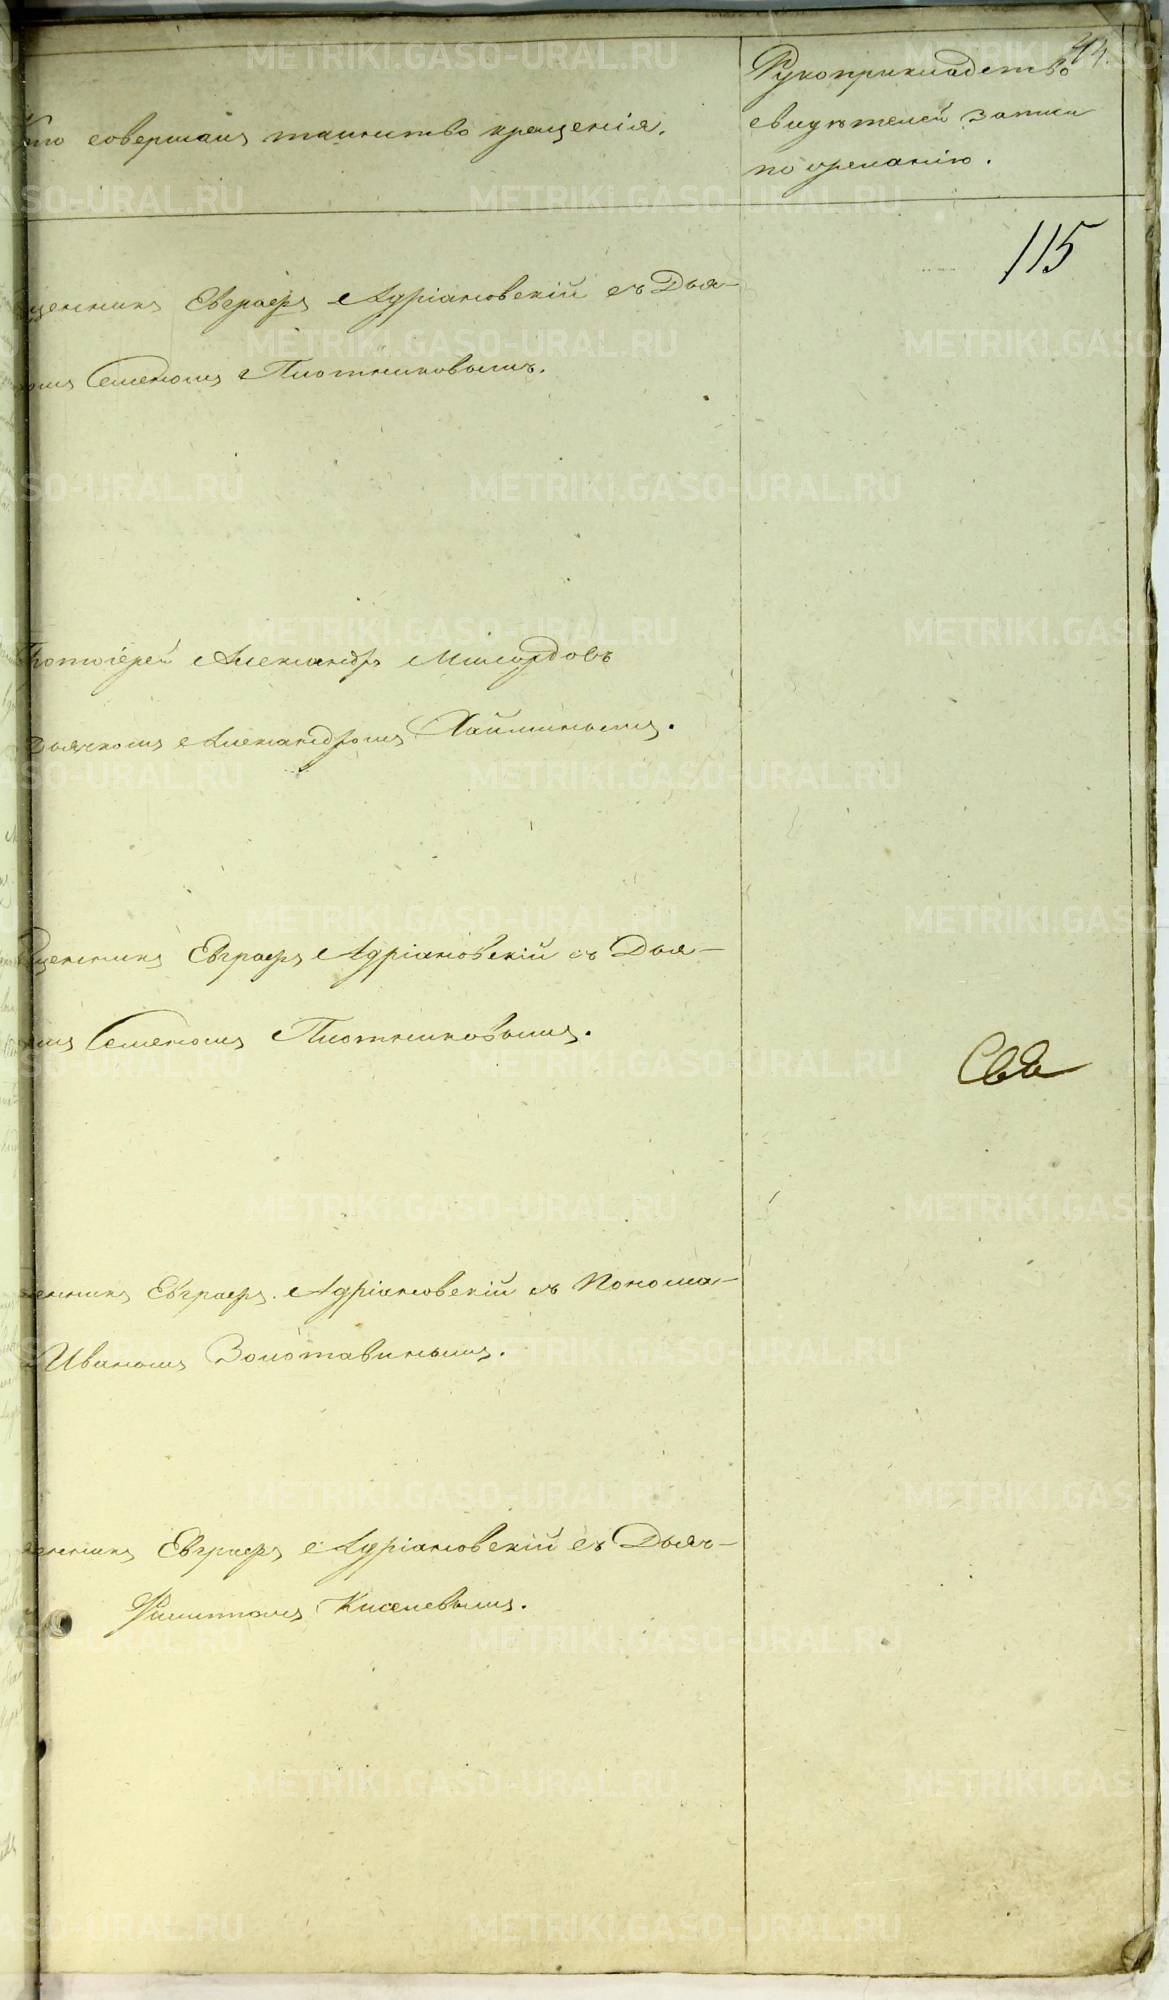 44.
кто совершалъ таинство крещенія.
Рукоприкладство
свидѣтелей записи
по желанію.
115
щенникъ Евграфъ Адріановскій съ Дья-
омъ Семеномъ Плотниковымъ.
Протоіерей Александръ Милордовъ
Дьячкомъ Александромъ Хайминымъ.
щенникъ Евграфъ Адріановскій съ Дья-
омъ Семеномъ Плотниковымъ.
Свя
енникъ Евграфъ Адріановскій съ Понома-
Иваномъ Золотавинымъ.
щенникъ Евграфъ Адріановскій съ Дьяч-
Филиппомъ Киселевымъ.
METRIKI.GASO-URAL.RU